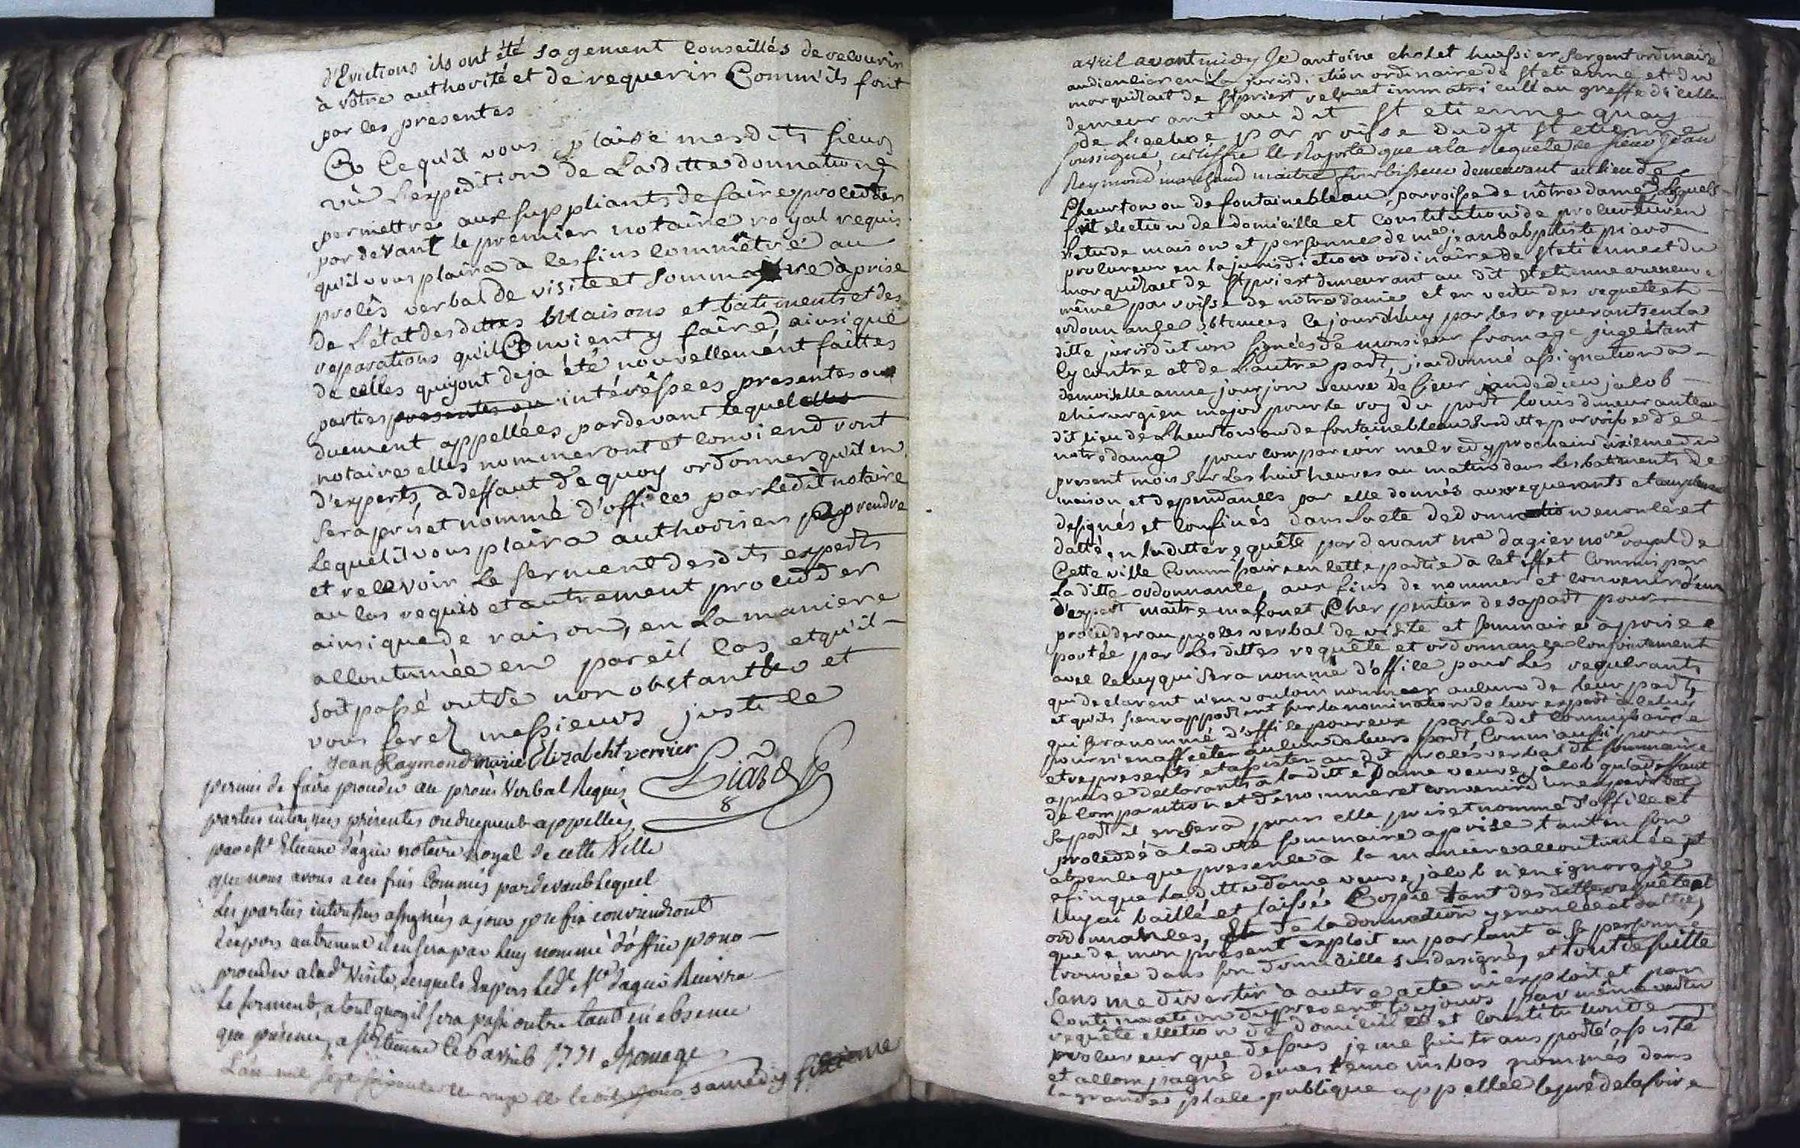 d'Evictions ils ont été sagement conseillés de recourir
à vôtre authorité et de requerir Comm'ils font
par les presentes
Ce qu'il vous plaise mesdits sieurs
vû l'expedition de Laditte donnation
permettre aux suppliants de faire proceder
pardevant le premier notaire royal requis
qu'il vous plaira à les fins commêtre au
procès verbal de visite et sommaire aprise
de L'état desdittes Maisons et batiments et des
reparations qu'il Convient y faire, ainsi que
de celles quiyont deja été nouvellement faittes
parties presentes ou intéréssées presentes ou
duement appellées pardevant lequel
notaire elles nommeront et conviendront
d'experts, a deffaut de quoy ordonner qu'il en
sera pris et nommé d'office par ledit notaire
Lequel il vous plaira authoriser prendre
et recevoir Le serment desdits experts
au cas requis et autrement proceder
ainsique de raison, en La maniere
accoutumée en pareil cas, et qu'il
soit passé outre non obstant et
vous ferez messieurs justice
Jean Raymond marie Elizabeht verrier
permis de faire proceder au procès Verbal Requis
parties interessées présentes ou duement appellées
par Me Etienne Dagier notaire Royal de cette Ville
que nous avons a ces fins Commis pardevant Lequel
Les parties interessées assignées a jour prefix conviendront
d'expers autrement il en sera par luy nommé d'office pour
proceder a lade Visite, desquels Expers led. Me Dagier Recevra
le serment, a tout quoy il sera passé outre tant en absence
que présence, a St Etienne Ce 6 avril 1771 fromage
L'an mil sept soixante et onze et le samedy sixieme
avril avant midy Je antoine cholet huissier sergent ordinaire
audiencier en La jurisdiction ordinaire de St etienne et du
marquisat de St priest reçu et immatriculé au greffe d'icelle
demeurant au dit St etienne quay
de parroisse du dit St etienne
soussigné certiffie et Raporte que a la Requete de sieur Jean
Reymond marchand maitre fourbisseur demeurant au lieu de
Cheurton ou de fontainebleau, parroisse de nôtre dame, Lequel
fait election de domicille et constitution de procureur en
l'etude maison et personne de me jean baptiste piard
procureur en la jurisdiction ordinaire de St etienne et du
marquisat de St priest demeurant au dit St etienne
même parroisse de nôtre dame et en vertu des requete et
ordonnance obtenues ce jourdhuy par les requerants en la
ditte jurisdiction signées de monsieur fromage juge étant
cy contre et de L'autre part, j'ai donné assignation à
demoiselle anne jourjon veuve de sieur jacob
chirurgien major pour le roy du port louis demeurant au
dit lieu de Cheurton ou de fontainebleau susditte parroisse de
notre dame pour comparoir mercredy prochain dixieme du
present mois sur Les huit heures au matin dans Les batiments de
maison et dependances par elle donnés aux requerants et
designés et confinés dans l'acte de donnation enoncé et
datté en laditte requête pardevant me dagier nore royal de
Cette ville Commissaire en cette partie à cet effet Commis par
La ditte ordonnance, aux fins de nommer et convenir d'un
d'expert maitre masson et Cherpentier de sa part pour
proceder au proces verbal de visite et sommaire aprise
portée par Lesdittes requête et ordonnance conjointement
avec celuy qui sera nommé d'office pour Les requerants
qui declarent n'en vouloir nommer aucun de leur part
et qu'ils s'en rapportent sur la nomination de leur expert à celuy
qui sera nommé d'office pour eux par le dit Commissaire
pour n'en affecter aucun de leur part Comm'aussi pour
etre presents et assister au dit procès verbal de sommaire
aprise declarant à la ditte Dame veuve jacob qu'a deffaut
de comparution et de nommer et convenir d'un expert de
sa part il en sera pour elle pris et nommé d'office et
procedé à la ditte sommaire aprise tant en son
absence que presence à la maniere accoutumée, et
afin que la ditte dame veuve jacob n'en ignore je
luy ai baillé et laissé Coppie tant des dittes requête et
ordonnances, de la donnation y enoncée et dattée,
que de mon present exploit en parlant à sa personne
trouvée dans son domicille susdesigné, et tout de suitte
sans me divertir à autre acte ni exploit et par
Continuation du present toujours par même vertu
requête election de domicile et constitution de
procureur que dessus je me suis transporté assisté
et accompagné de mes temoins bas nommés dans
la grande place publique appellée le pré de la foire